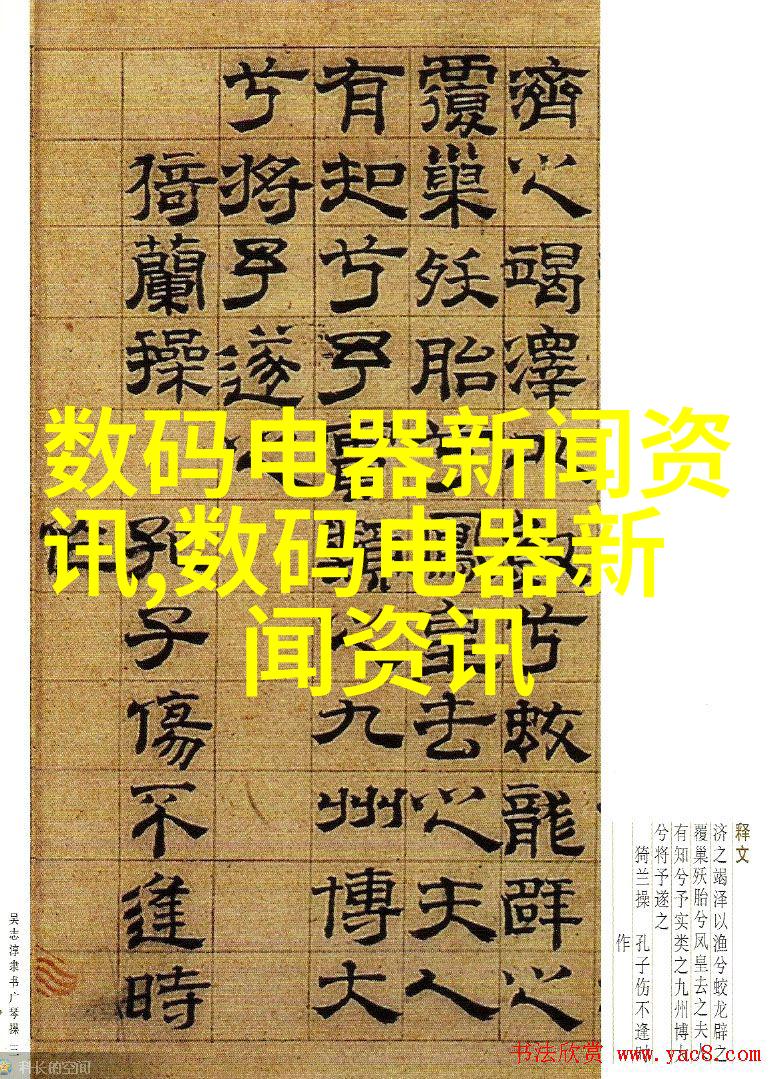 濟之竭澤
兮蛟龍辟之
覆巢殀胎
皇去之夫人
有知兮予實類
九州博大
兮將予遂
猗蘭操
孔子傷不逢時
作
数码电器新闻资
讯,数码电器新
闻资讯
释文
济之竭泽以渔兮蛟龙辟之
覆巢殀胎兮凤皇去之夫人
有知兮予实类之九州博大
兮将予遂之
猗兰操 孔子伤不逢时
作
吴志淳隶书广琴操 三
科长的空间
书法欣赏 www.yac8.com